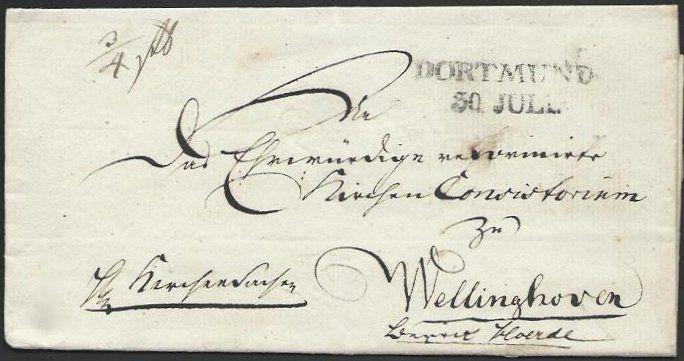 3/4
DORTMUND
30 JULI.
An
Das Ehrwürdige reformirte
Kirchen Consistorium
zu
Kirchensachen
Wellinghoven
Bezirk Hoerde